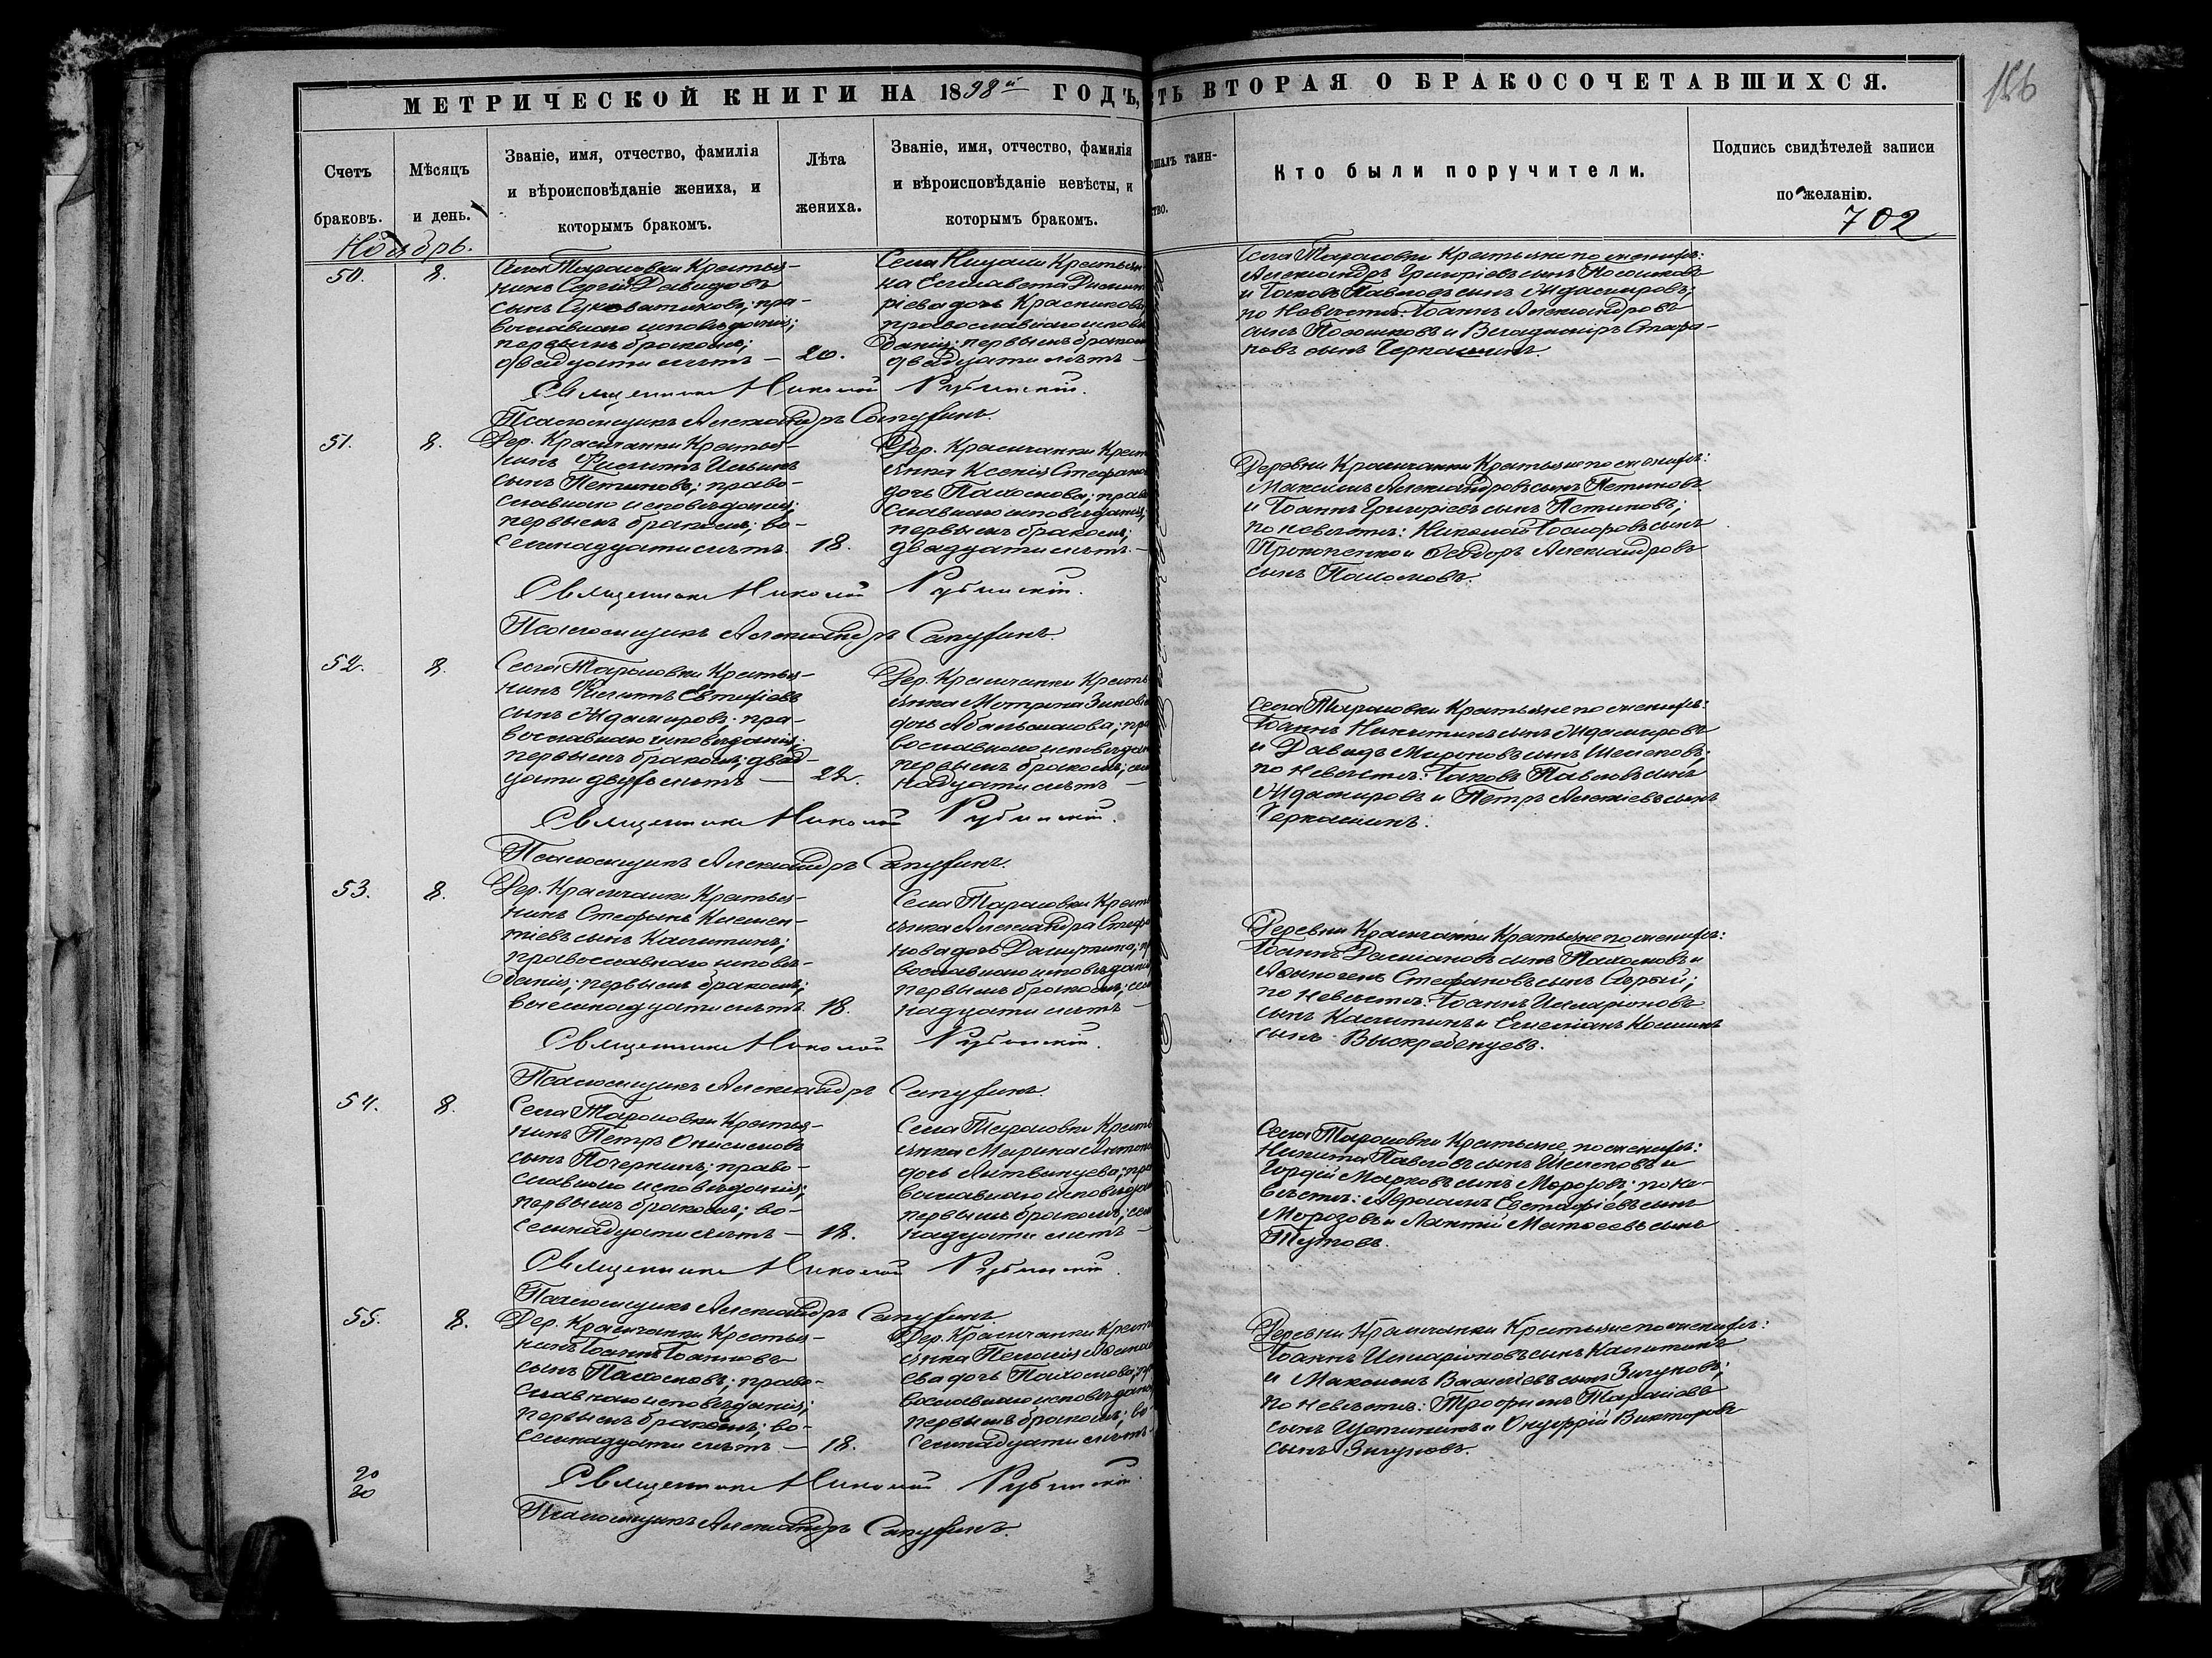 МЕТРИЧЕСКОЙ КНИГИ НА 1898й ГОДЪ,
ТЬ ВТОРАЯ О БРАКОСОЧЕТАВШИХСЯ.
156
Счетъ браковъ.
Мѣсяцъ и день.
Званіе, имя, отчество, фамилія
и вѣроисповѣданіе жениха, и
которымъ бракомъ.
Лѣта
жениха.
Званіе, имя, отчество, фамилія
и вѣроисповѣданіе невѣсты, и
которымъ бракомъ.
ршалъ таин-
ство.
Кто были поручители.
Подпись свидѣтелей записи
по желанію.
702
Ноябрь.
50.
8.
Села Тарасовки Крестья-
нинъ Сергій Давидовъ
сынъ Суковатиковъ; пра-
вославнаго исповѣданія;
первымъ бракомъ;
двадцати лѣтъ —
20.
Села Крестьян
на Елисавета Димит
ріева дочь Красникова
православнаго исповѣ
данія; первымъ бракомъ
двадцати лѣтъ —
Села Тарасовки Крестьяне по женихѣ:
Александръ Григоріевъ сынъ Посошковъ
и Іаковъ Павловъ сынъ Ждамировъ;
по Невѣстѣ: Іоаннъ Александровъ
сынъ Посошковъ и Владиміръ Стефа-
новъ сынъ Черкашинъ.
Священникъ Николай Рубинскій.
Псаломщикъ Александръ Сапухинъ.
51.
8.
Дер. Красичанки Крестья-
нинъ Филиппъ Ильинъ
сынъ Петиновъ; право-
славнаго исповѣданія;
первымъ бракомъ; во-
семнадцати лѣтъ.
18.
Дер. Красичанки Крест
янка Ксенія Стефано
дочь Пахомова; право
славнаго исповѣданія;
первымъ бракомъ;
двадцати лѣтъ. —
Деревни Красичанки Крестьяне по женихѣ:
Максимъ Александровъ сынъ Петиновъ
и Іоаннъ Григоріевъ сынъ Петиновъ;
по невѣстѣ: Николай сынъ
Прокопенко и Ѳеодоръ Александровъ
сынъ Пахомовъ.
Священникъ Николай Рубинскій.
Псаломщикъ Александръ Сапухинъ.
52.
8.
Села Тарасовки Крестья-
нинъ Филиппъ Евтихіевъ
сынъ Ждамировъ; пра-
вославнаго исповѣданія;
первымъ бракомъ; двад-
цати двухъ лѣтъ —
22.
Дер. Красичанки Кресть
янка Матрона Зиновіе
дочь пра
вославнаго исповѣдан
первымъ бракомъ; сем
надцати лѣтъ —
Села Тарасовки Крестьяне по женихѣ:
Іоаннъ Никитинъ сынъ Ждамировъ
и Давидъ Мироновъ сынъ Шелеховъ;
по Невѣстѣ: Іаковъ Павловъ сынъ
Ждамировъ и Петръ Алексіевъ сынъ
Черкашинъ.
Священникъ Николай Рубинскій.
Псаломщикъ Александръ Сапухинъ.
53.
8.
Дер. Красичанки Крестья-
нинъ Стефанъ Климен-
тіевъ сынъ Калитинъ;
православнаго исповѣ-
данія; первымъ бракомъ;
восемнадцати лѣтъ.
18.
Села Тарасовки Крест
янка Александра Стефа
нова дочь
вославнаго исповѣдані
первымъ бракомъ; сем
надцати лѣтъ —
Деревни Красичанки Крестьяне по женихѣ:
Іоаннъ Даміановъ сынъ Пахомовъ и
Аѳиногенъ Стефановъ сынъ Сѣрый;
по Невѣстѣ: Іоаннъ Иларіоновъ
сынъ Калитинъ и Емеліанъ Козминъ
сынъ Выскребенцевъ.
Священникъ Николай Рубинскій.
Псаломщикъ Александръ Сапухинъ.
54.
8.
Села Тарасовки Крестья-
нинъ Петръ Онисимовъ
сынъ Почеркинъ; право-
славнаго исповѣданія;
первымъ бракомъ; во-
семнадцати лѣтъ —
18.
Села Тарасовки Кресть
янка Марина Антоно
дочь Литвинцева; пра
вославнаго исповѣдан
первымъ бракомъ; сем
надцати лѣтъ —
Села Тарасовки Крестьяне, по женихѣ:
Никита Павловъ сынъ Шелеховъ и
Гордій Марковъ сынъ Морозовъ; по Не-
вѣстѣ: Авраамъ Евстафіевъ сынъ
Морозовъ и Матѳеевъ сынъ
Тутовъ.
Священникъ Николай Рубинскій.
Псаломщикъ Александръ Сапухинъ.
55.
8.
Дер. Красичанки Крестья-
нинъ Іоаннъ Іоанновъ
сынъ Пахомовъ; право-
славнаго исповѣданія;
первымъ бракомъ; во-
семнадцати лѣтъ —
18.
Дер. Красичанки Крест
янка Пелагія
ева дочь Пахомова; пра
вославнаго исповѣдан
первымъ бракомъ; во
семнадцати лѣтъ
Деревни Красичанки Крестьяне по женихѣ:
Іоаннъ Иларіоновъ сынъ Калитинъ
и Максимъ Василіевъ сынъ Зигуновъ;
по Невѣстѣ: Трофимъ Тарасіевъ
сынъ Щетининъ и Онуфрій Викторовъ
сынъ Зигуновъ.
20
20
Священникъ Николай Рубинскій.
Псаломщикъ Александръ Сапухинъ.